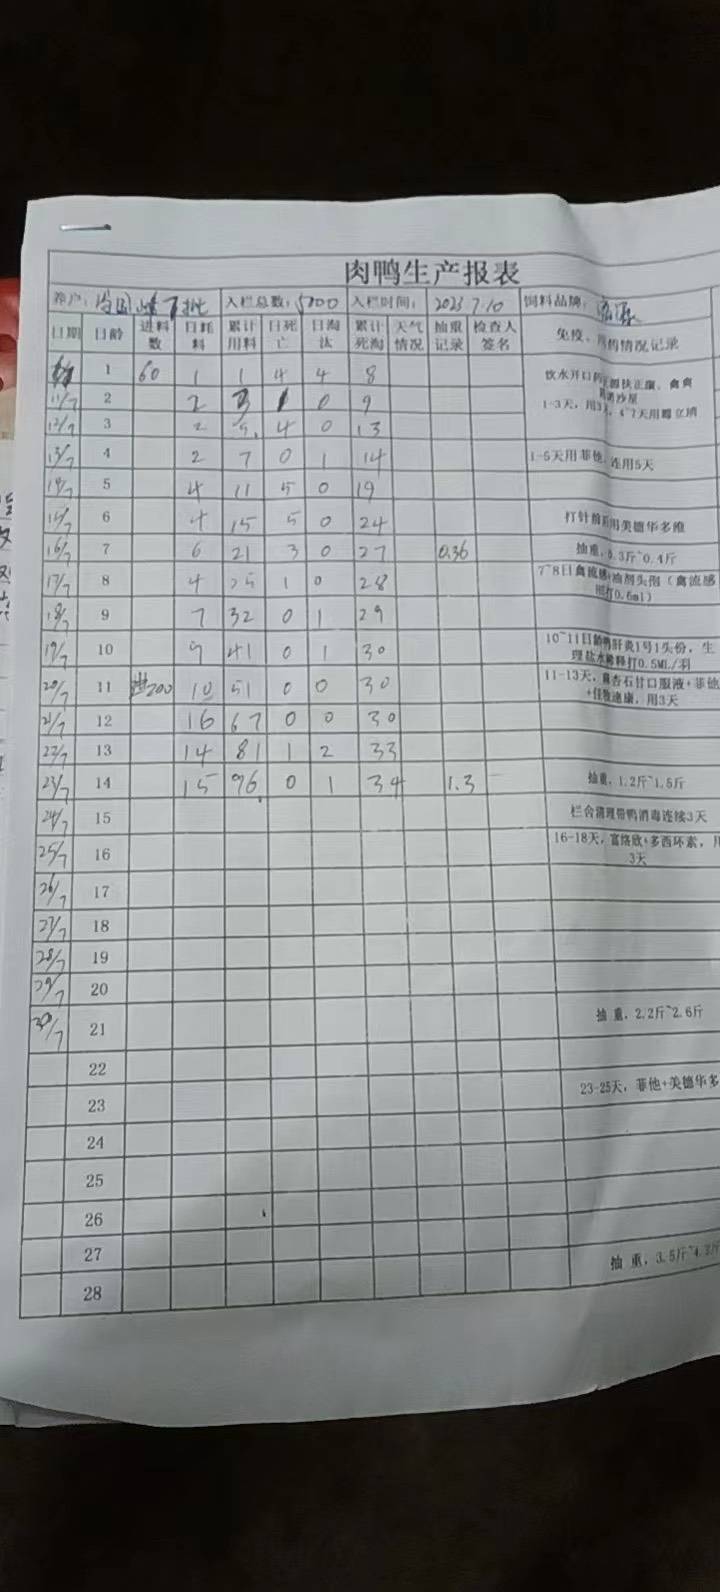 肉鸭生产报表
养户: 入栏总数: 5700 入栏时间: 2023 7.10 饲料品牌:
日期 日龄 进料数 日耗料 累计用料 日死亡 日淘汰 累计死淘 天气情况 抽重记录 检查人签名 免疫、情况记录
1 60 1 1 4 4 8 饮水开口
11/7 2 2 3 1 0 9
12/7 3 2 5 4 0 13 1-3天,用3 4~7天用
13/7 4 2 7 0 1 14 1-5天用菲他,连用5天
14/7 5 4 11 5 0 19
15/7 6 4 15 5 0 24 打针前 用美德华多维
16/7 7 6 21 3 0 27 0.36 抽重,0.3斤~0.4斤
17/7 8 4 25 1 0 28 7~8日禽流感+油剂头孢(禽流感 打0.6ml)
18/7 9 7 32 0 1 29
19/7 10 9 41 0 1 30 10~11日龄鸭肝炎1号1头份,生理盐水稀释打0.5ML/羽
20/7 11 进200 10 51 0 0 30 11-13天,麻杏石甘口服液+菲他+佳牧速康,用3天
21/7 12 16 67 0 0 30
22/7 13 14 81 1 2 33
23/7 14 15 96 0 1 34 1.3 抽重,1.2斤~1.5斤
24/7 15 栏舍清理带鸭消毒连续3天
25/7 16 16-18天,富络欣+多西环素,用3天
26/7 17
27/7 18
28/7 19
29/7 20
30/7 21 抽重,2.2斤~2.6斤
22
23 23-25天,菲他+美德华多
24
25
26
27 抽重,3.5斤~4.
28